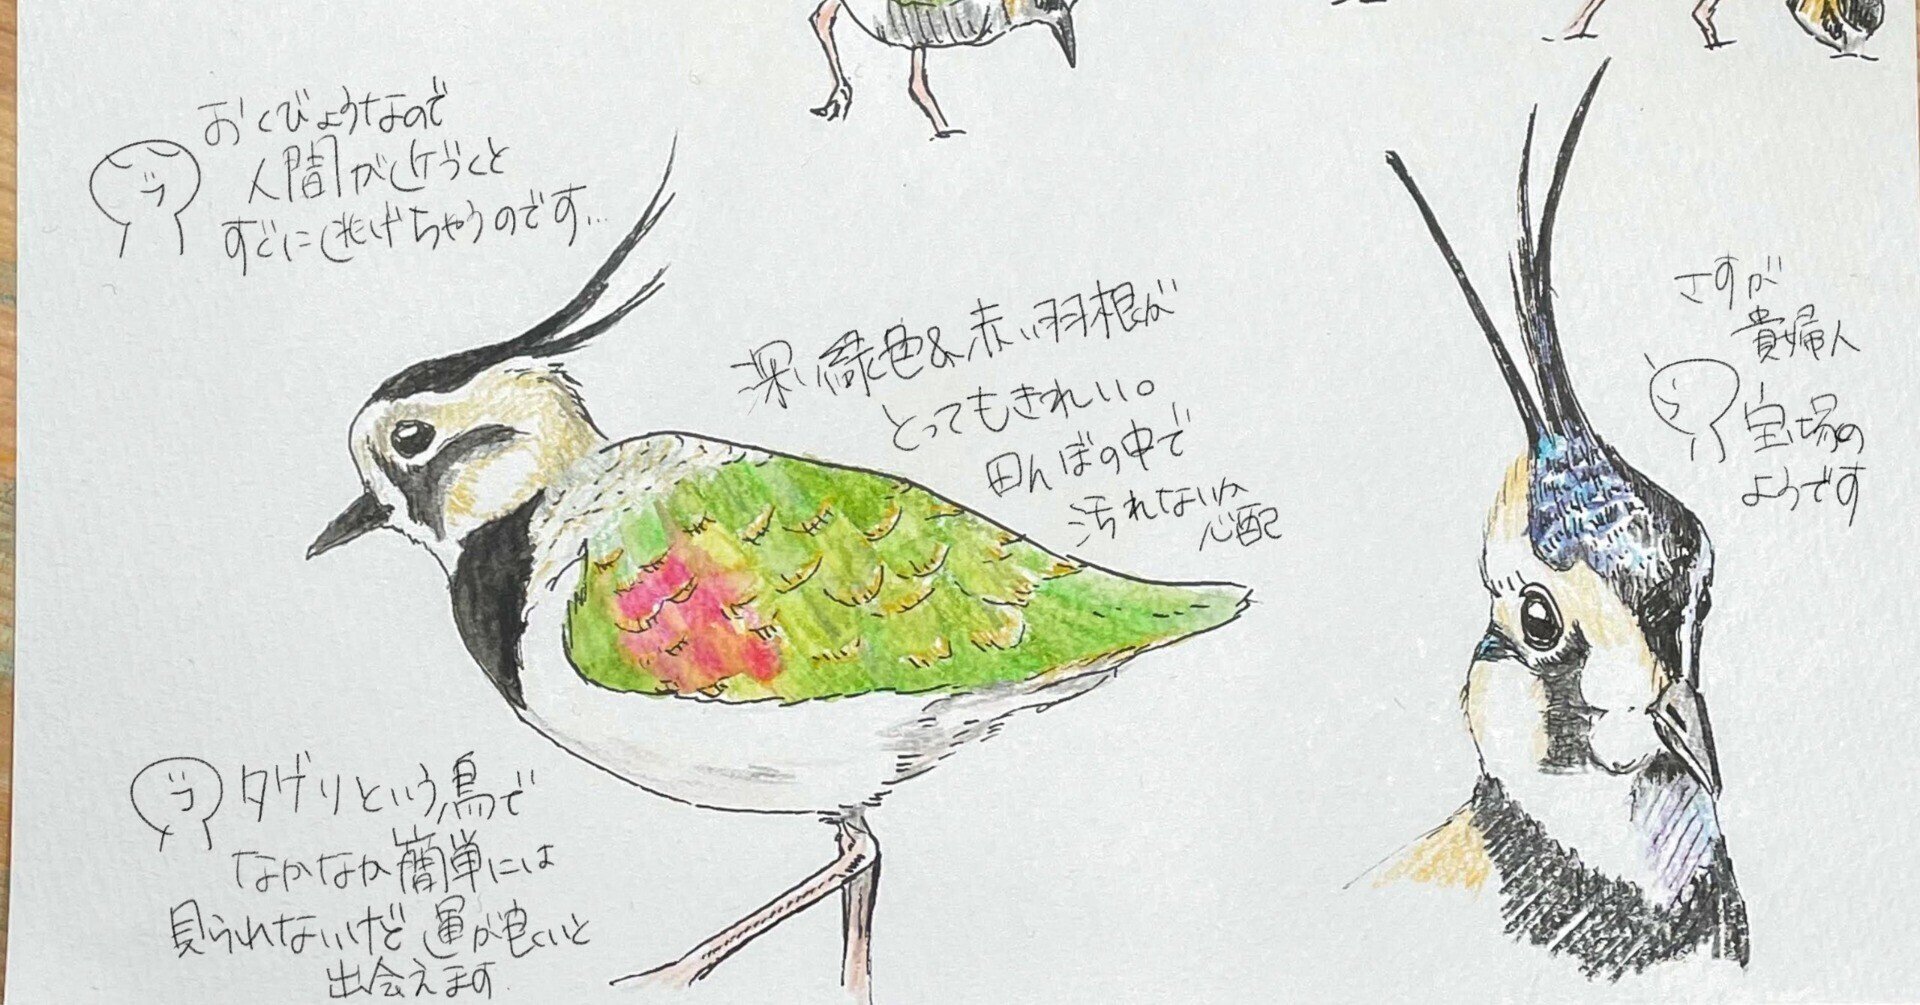 おくびょうなので
人間が近づくと
すぐに逃げちゃうのです…
深い緑色&赤い羽根が
とってもきれい。
田んぼの中で
汚れないか
心配
さすが
貴婦人
宝塚の
ようです
タゲリという鳥で
なかなか簡単には
見られないけど運が良いと
出会えます